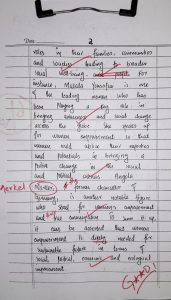 Date 2
roles in their families, communities
and broader leading to broader
social well-being. and For
instance, Malala Yousafzai is one
of the leading women who has
been playing a big role in
bringing and social change
across the globe. She speaks up
for women empowerment so that
women could utilize their
and potentials in bringing a
positive change in the social
and political Angela
Merkel
former chancellor of
Germany, is another notable figure
who stood for women's empowerment
and the To sum it up,
it can be asserted that women
empowerment is needed for
sustainable future in terms of
social, political, economic and ecological
improvement.
Good